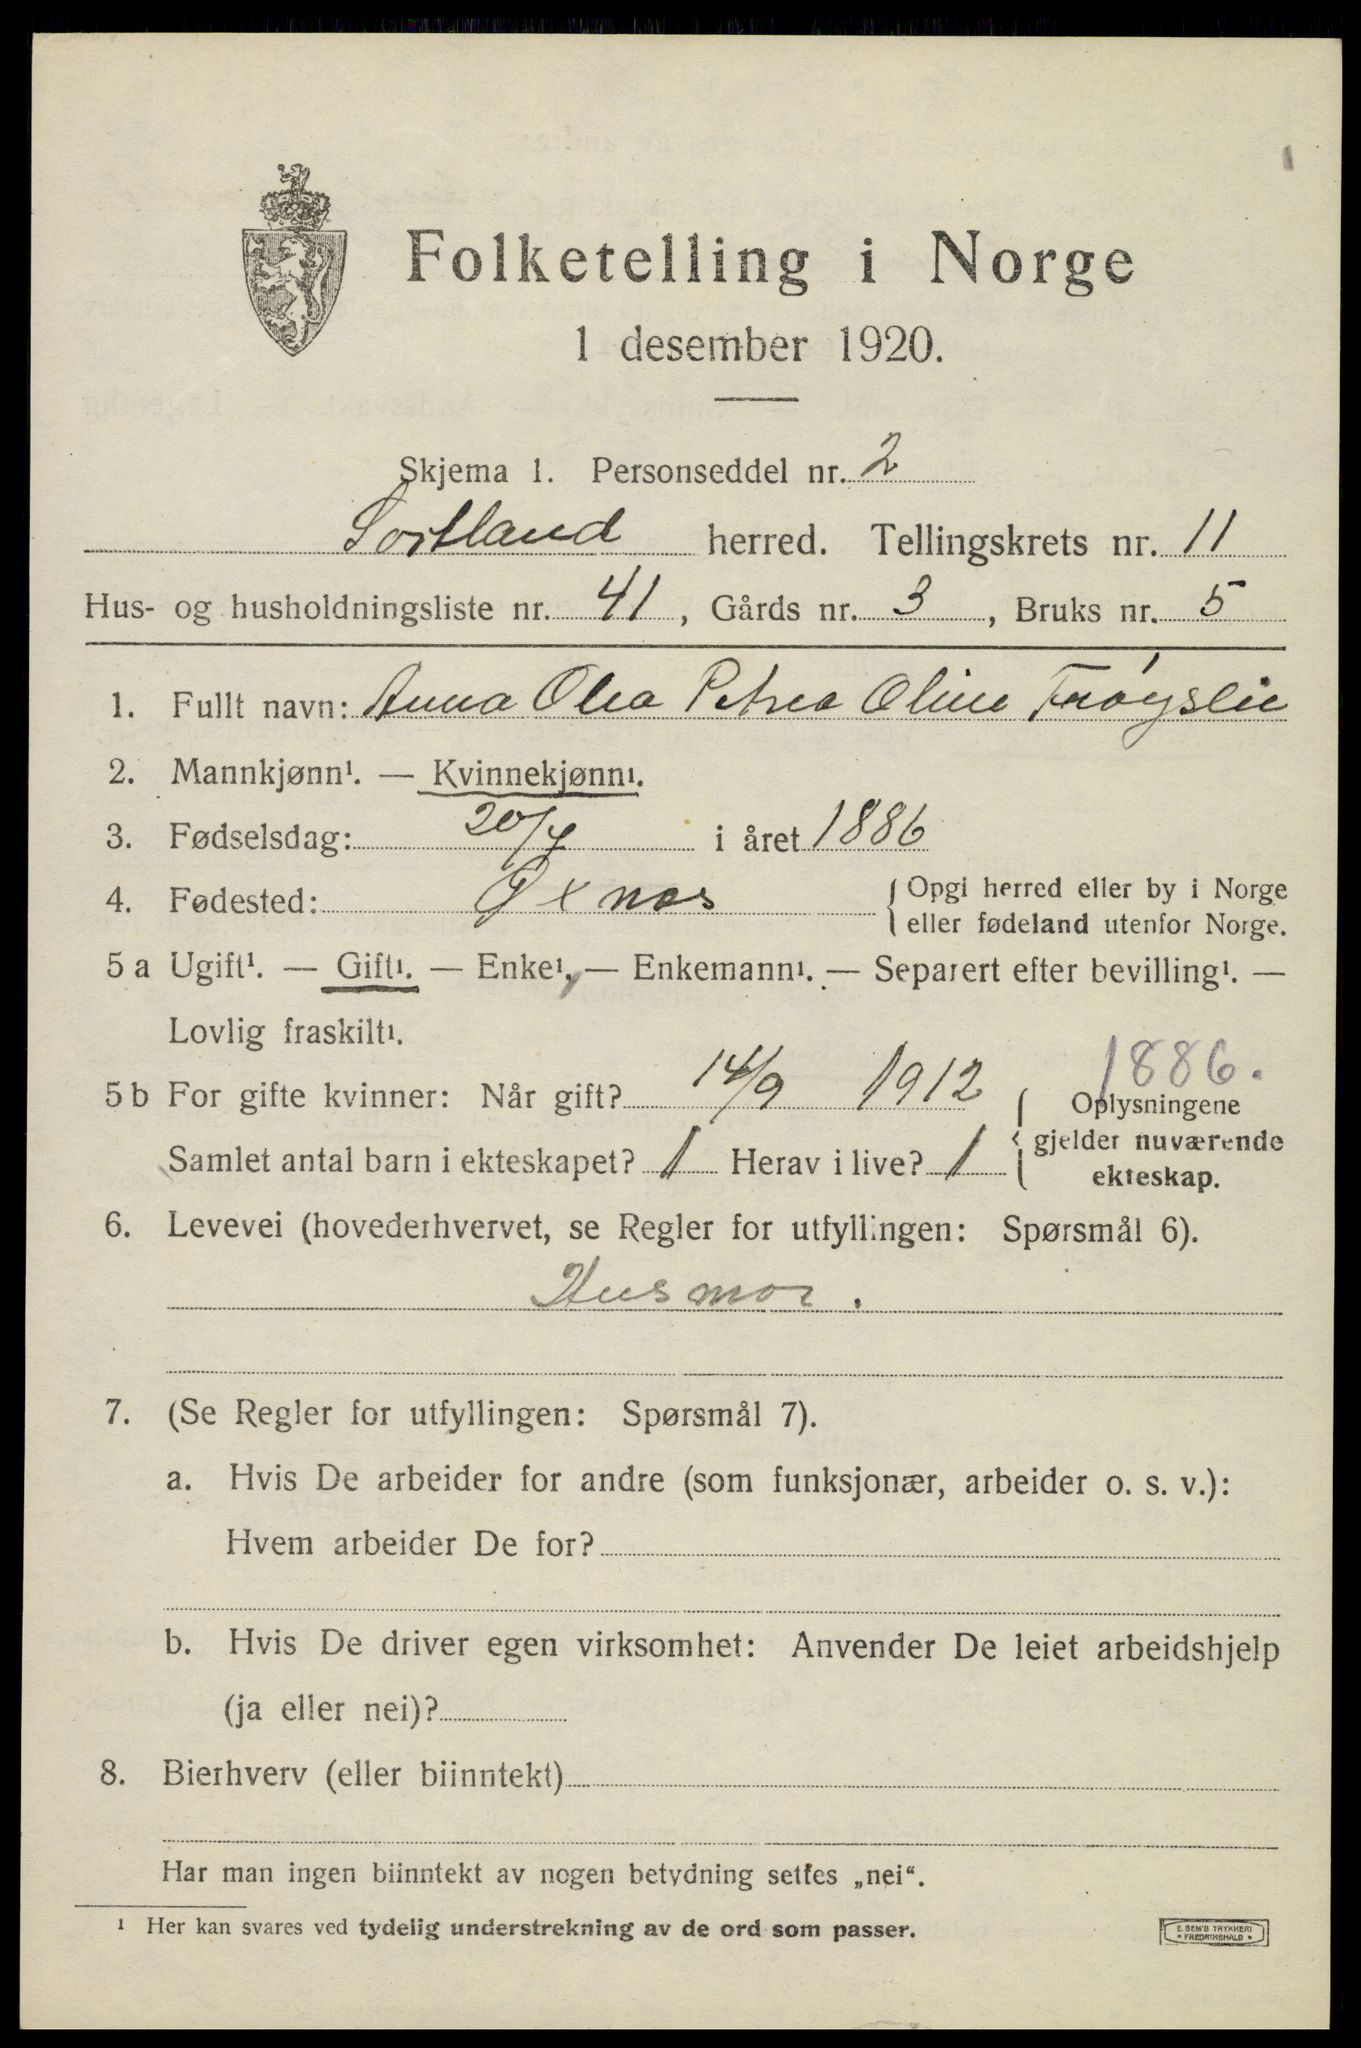 Folketelling i Norge
1 desember 1920.
Skjema 1. Personseddel nr. 2
Sortland herred. Tellingskrets nr. 11
Hus- og husholdningsliste nr. 41, Gårds nr. 3, Bruks nr. 5
1. Fullt navn: Anna Olea Petrea Oline Frøyslie
2. Mannkjønn¹. — Kvinnekjønn¹.
3. Fødselsdag: 20/4 i året 1886
4. Fødested: Øxnes {Opgi herred eller by i Norge
eller fødeland utenfor Norge.
5 a Ugift¹. — Gift¹. — Enke¹, — Enkemann¹. — Separert efter bevilling¹. —
Lovlig fraskilt¹.
1886.
5 b For gifte kvinner: Når gift? 14/9 1912 { Oplysningene
gjelder nuværende
Samlet antal barn i ekteskapet? 1 Herav i live? 1
ekteskap.
6. Levevei (hovederhvervet, se Regler for utfyllingen: Spørsmål 6).
Husmor.
7. (Se Regler for utfyllingen: Spørsmål 7).
a. Hvis De arbeider for andre (som funksjonær, arbeider o. s. v.):
Hvem arbeider De for?
b. Hvis De driver egen virksomhet: Anvender De leiet arbeidshjelp
(ja eller nei)?
8. Bierhverv (eller biinntekt)
Har man ingen biinntekt av nogen betydning settes „nei“.
¹ Her kan svares ved tydelig understrekning av de ord som passer.
E. SEM'S TRYKKERI
* FREDRIKSHALD *